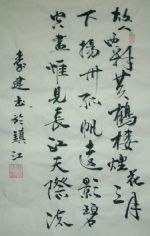 故人西辭黃鶴樓煙花三月
下揚州孤帆遠影碧
空盡惟見長江天際流
李建书於鎮江